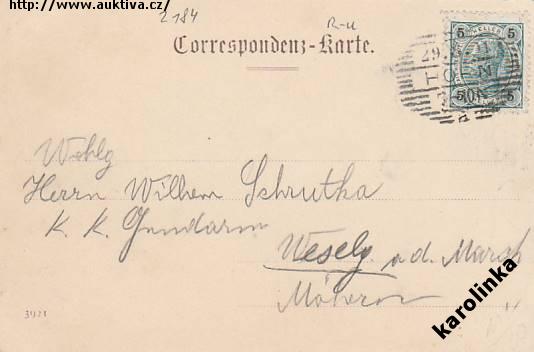 http://www.auktiva.cz/
2184
R-u
Correspondenz-Karte.
5 5
5 5
29
Wohlg
Herrn Wilhem Schrutka
K. K. Gendarm
Wesely a d. March
Mähren
3921
karolinka